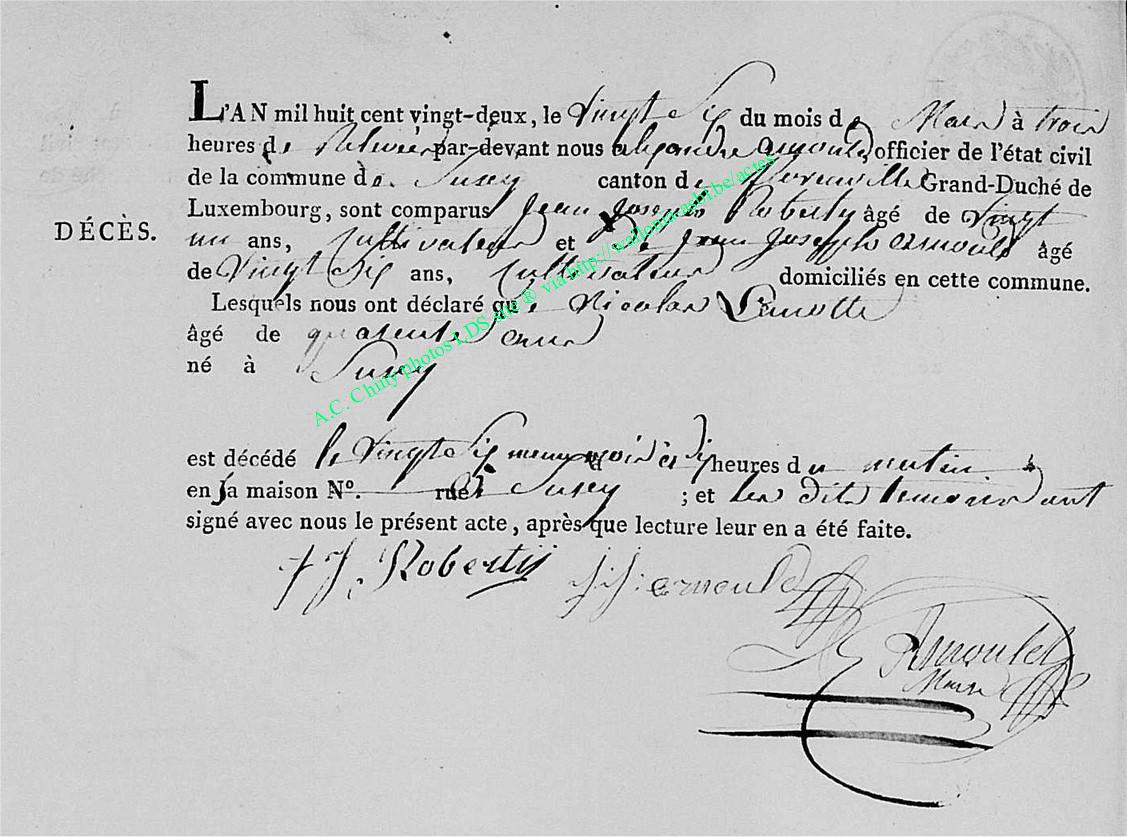 L'AN mil huit cent vingt-deux, le vingt six du mois de Mars à trois
heures de Relevée par-devant nous alexandre arnould, officier de l'état civil
de la commune de Suxy canton de florenville Grand-Duché de
Luxembourg, sont comparus Jean Joseph Roberty âgé de Vingt
DÉCÈS.
un ans, Cultivateur et de Jean Joseph arnould âgé
de Vingt Six ans, Cultivateur domiciliés en cette commune.
Lesquels nous ont déclaré que Nicolas
âgé de quarente ans
né à Suxy
est décédé le vingt Six meme mois à dix heures du matin
en sa maison Nº. rue à Suxy ; et les dits temoins ont
signé avec nous le présent acte, après que lecture leur en a été faite.
J J. Robertij J: J: arnould
Arnould
Maire
A.C. Chiny photos LDS site ® via http://walloniasbl.be/actes